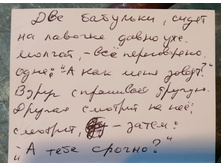 Две бабульки, сидят
на лавочке давно уже.
молчат, - всё переговорено.
Одна: "А как меня зовут?"
Вдруг спрашивает другую.
Другая смотрит на неё:
смотрит, - затем:
- "А тебе срочно?"